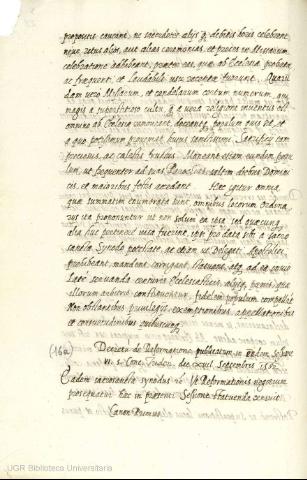 propositis caueant, ne sacerdotes alijs q̃ debitis horis celebrent
neue ritus alios, aut alias ceremonias, et preces in Missarum
celebratione adhibeant, præter eas, quæ ab Ecclesia probatæ,
ac frequenti, et laudabili usu receptæ fuerint. Quarũ
dam uero Missarum, et candelarum certum numerum, qui
magis a superstitioso cultu, q̃ a uera religione inuentus est
omnino ab Ecclesia remoueant, doceantq̃ populum quis sit, et
a quo potissimum proueniat huius sanctissimi Sacrificij tam
preciosus, ac cælestis fructus. Moneant etiam eundem popu
lum, ut frequenter ad suas Parochias, saltem diebus Domini
cis, et maioribus festis accedant. Hæc igitur omnia
quæ summatim enumerata sunt, omnibus locorum Ordina
rijs ita proponuntur ut non solum ea ipsa, sed quæcunq̃
alia huc pertinere uisa fuerint, ipsi pro data sibi a sacro
sancta Synodo potestate, ac etiam ut Delegati Apostolicæ
prohibeant, mandent, corrigant, statuant, atq̃ ad ea inuio
late seruanda censuris Ecclesiasticis, alijsq̃ pœnis, quæ
illorum arbitrio constituentur, fidelem populum compellant
Non obstantibus priuilegijs, exemptionibus, appellationibus
et consuetudinibus quibuscunq̃
(16a) Decretum de Reformatione publicatum in eadem Sessione
VI. S. Conc. Triden. die xvij. Septembris 1562
Eadem sacrosancta synodus &c Vt Reformationis negotium
prosequatur Hæc in præsenti Sessione statuenda censuit
Canon Primus
UGR Biblioteca Universitaria